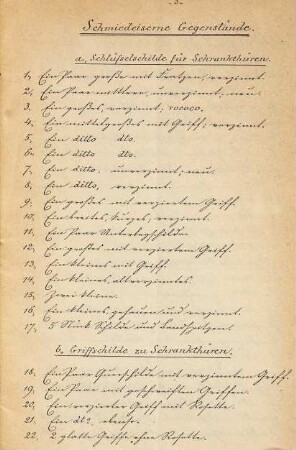 - 3 -
Schmiedeiserne Gegenstände.
a. Schlüsselschilde für Schrankthüren.
1, Ein Paar große mit Fratzen, verzinnt.
2, Ein Paar mittlere, unverzinnt, neu.
3, Ein großes, verzinnt, rococo.
4, Ein mittelgroßes mit Griff, verzinnt.
5, Ein ditto dto.
6, Ein ditto dto.
7, Ein ditto, unverzinnt, neu.
8, Ein ditto, verzinnt.
9, Ein großes mit verziertem Griff.
10, Ein breites, kurzes, verzinnt.
11, Ein Paar
12, Ein großes mit verziertem Griff.
13, Ein kleines mit Griff.
14, Ein kleines, altverzinntes.
15, Zwei kleine.
16, Ein kleines, gehauen und verzinnt.
17, 5 Stück Schilde und
b. Griffschilde zu Schrankthüren.
18, Ein Paar Querschilde mit verzinntem Griff.
19, Ein Paar mit geschweiften Griffen.
20, Ein verzierter Griff mit Rosette.
21, Ein dto, ebenso.
22, 2 glatte Griffe ohne Rosette.